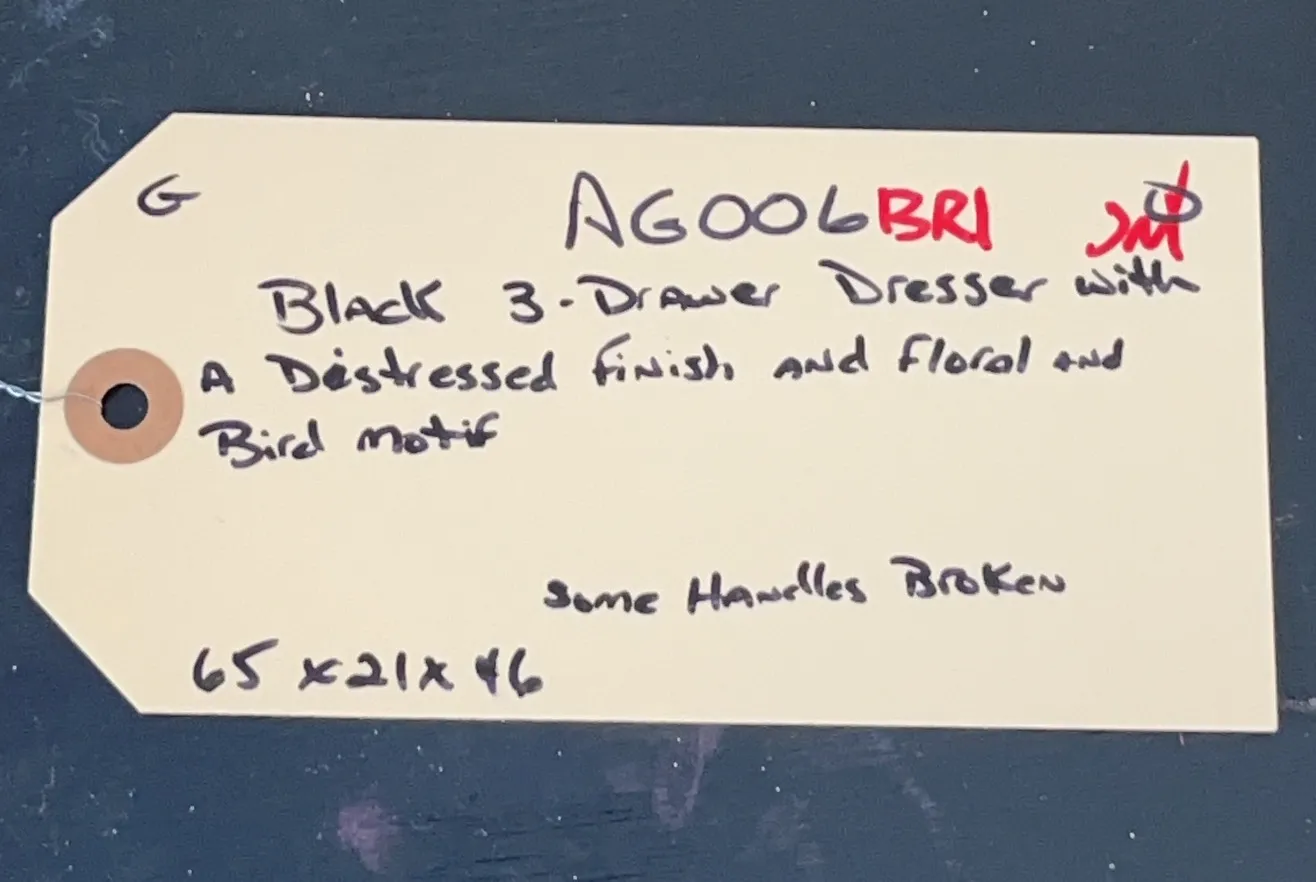 G AG006BR1 JM
Black 3-Drawer Dresser with
A Distressed Finish and Floral and
Bird Motif
Some Handles Broken
65 x 21 x 46